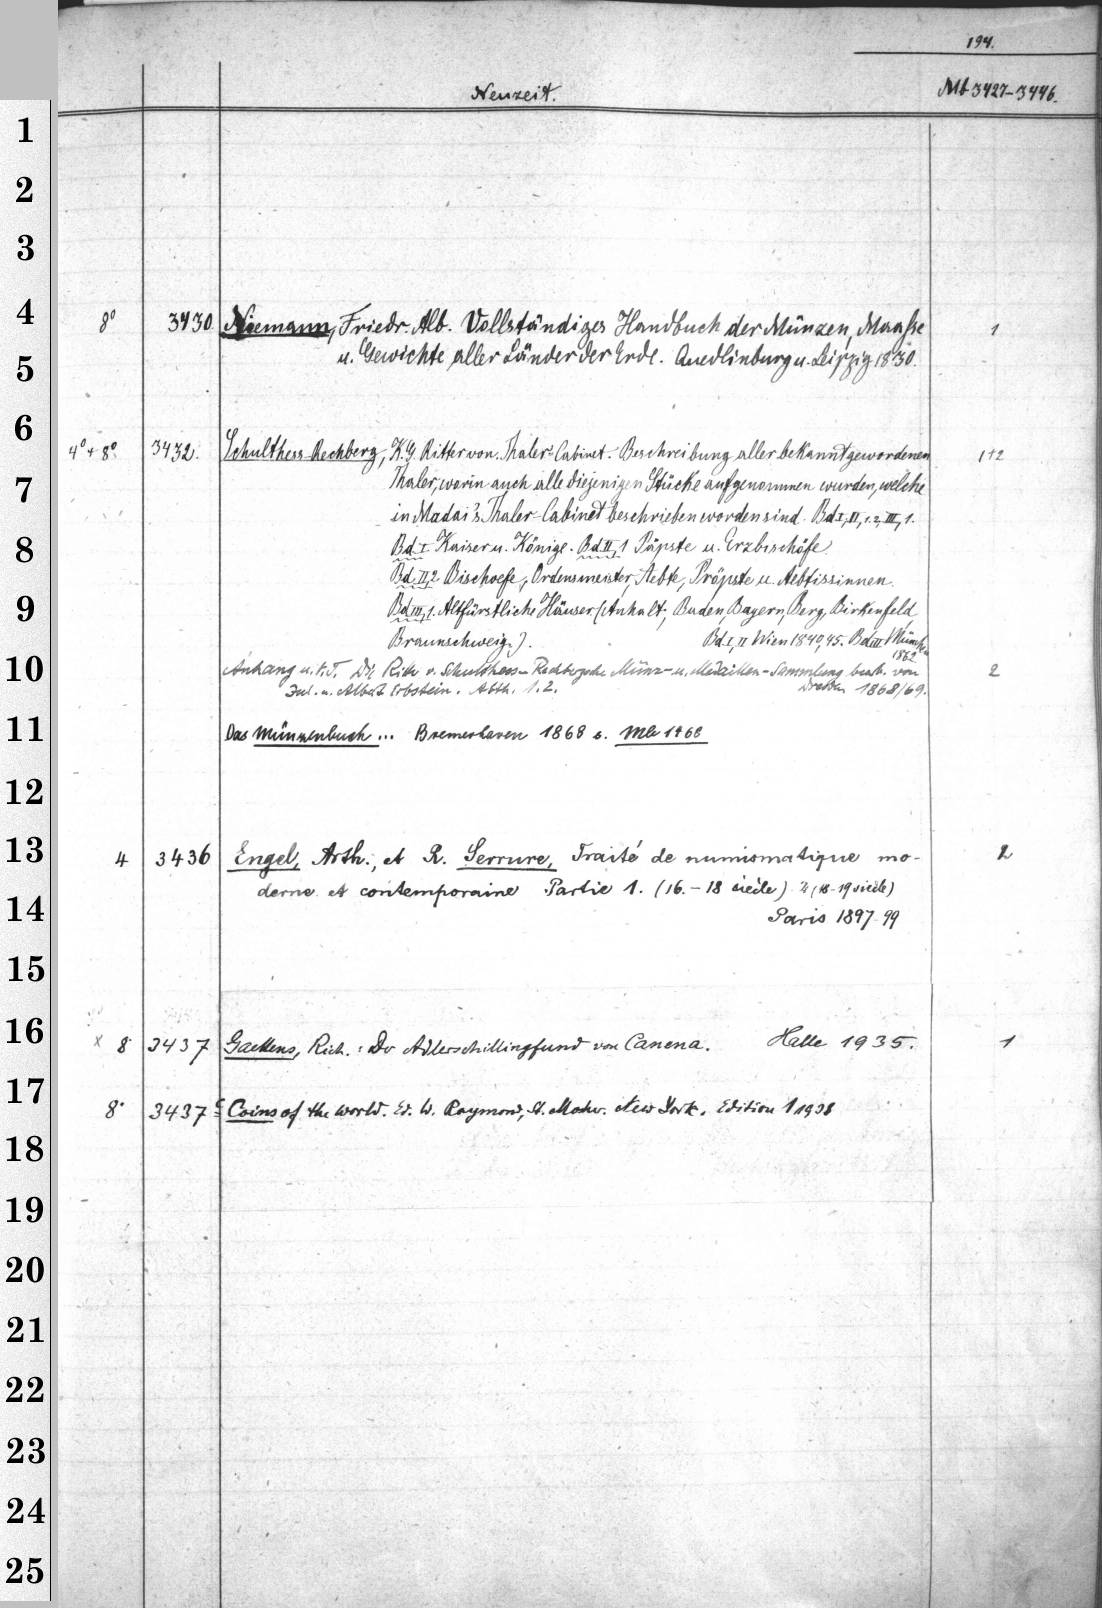 194.
Neuzeit. Mb 3427-3446.
1
2
3
4 8° 3430 Niemann, Friedr. Alb. Vollständiges Handbuch der Münzen, Maaße 1
5 u. Gewichte aller Länder der Erde. Quedlinburg u. Leipzig 1830.
6 4° + 8° 3432. Schulthess-Rechberg, K. G. Ritter von. Thaler-Cabinet. Beschreibung aller bekanntgewordenen 1+2
7 Thaler, worin auch alle diejenigen Stücke aufgenommen wurden, welche
in Madai's Thaler-Cabinet beschrieben worden sind. Bd I, II, 1. 2, III, 1.
8 Bd I Kaiser u. Könige. Bd II, 1 Päpste u. Erzbischöfe
Bd. II, 2 Bischoefe, Ordensmeister, Aebte, Pröpste u. Aebtissinnen.
9 Bd III, 1. Altfürstliche Häuser (Anhalt, Baden, Bayern, Berg, Birkenfeld,
Braunschweig.). Bd I, II Wien 1840, 45. Bd III München
1862
10 Anhang u. d. T. Die Ritter v. Schulthess-Rechbergsche Münz- u. Medaillen-Sammlung bearb. von 2
Jul. u. Albert Erbstein. Abth. 1. 2. Dresden 1868/69.
11 Das Münzenbuch ... Bremerhaven 1868 s. Mb
12
13 4 3436 Engel, Arth., et R. Serrure, Traité de numismatique mo- 2
derne et contemporaine Partie 1. (16. - 18 siècle) 2 (18-19 siècle)
14 Paris 1897-99
15
16 x 8° 3437 Gaettens, Rich.: Der Adlerschillingfund von Canena. Halle 1935. 1
17 8° 3437 c Coins of the world. Ed. W. Raymond, New York. Edition 1 1938
18
19
20
21
22
23
24
25